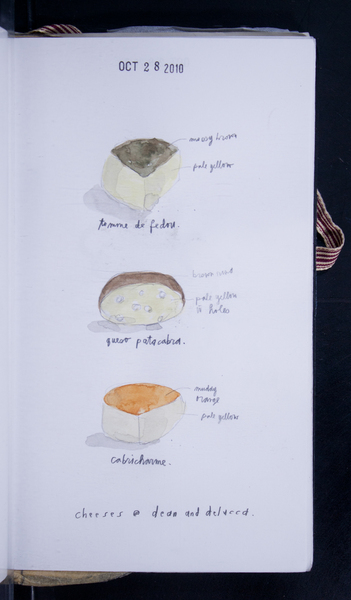 OCT 28 2010
mossy brown
pale yellow
tomme de fedou.
brown
pale yellow
holes
queso patacabra.
muddy
orange
pale yellow
cabricharme.
cheeses @ dean and deluca.